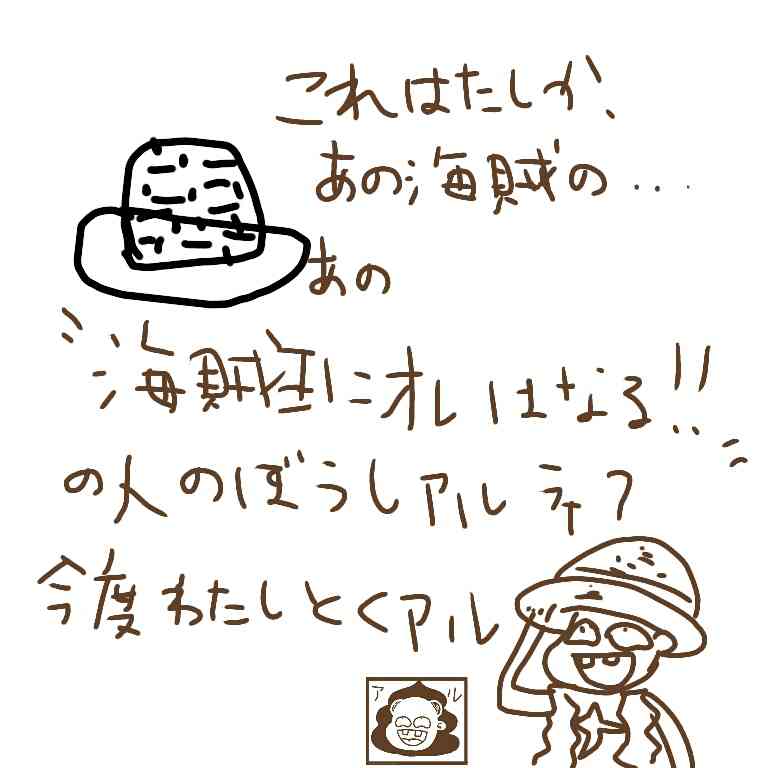 これはたしか、
あの海賊の...
あの
"海賊王にオレはなる!!"
の人のぼうしアルライ?
今度わたしとくアル
アル